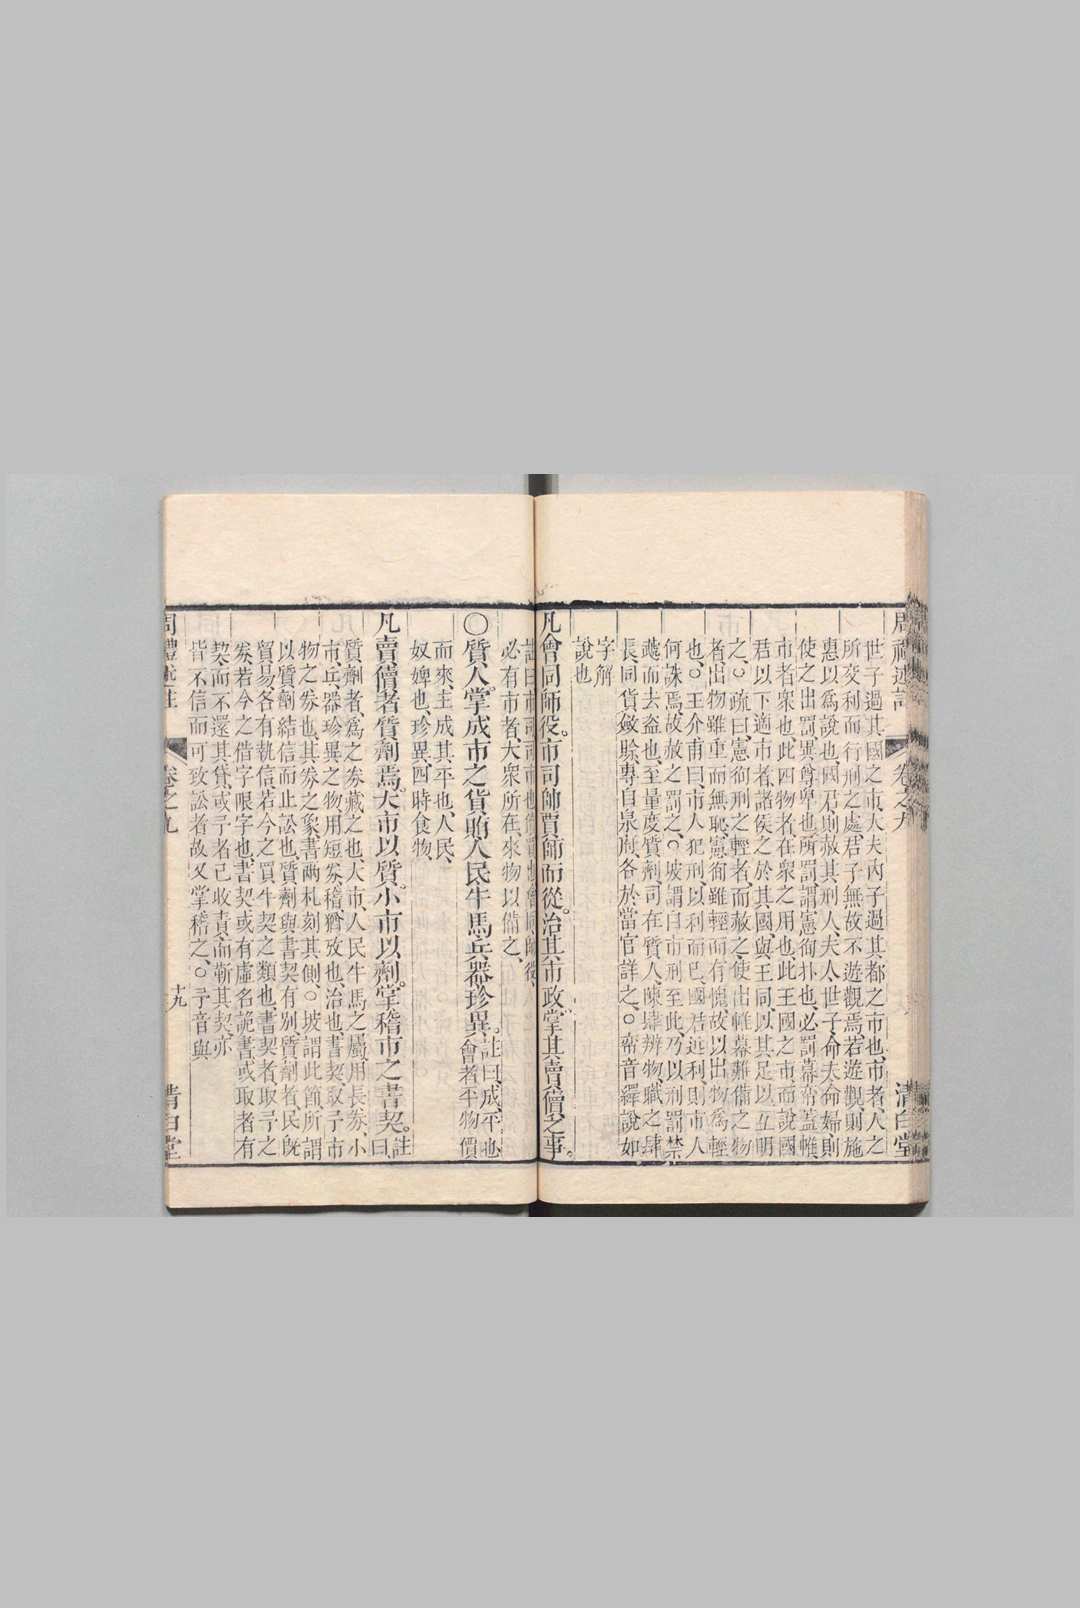 周禮述註 卷之九 清白堂
世子過其國之市、大夫內子過其都之市也、市者、人之
所交利而行刑之處、君子無故不遊觀焉、若遊觀、則施
惠以爲說也、國君則赦其刑人、夫人、世子、命夫、命婦、則
使之出罰、異尊卑也、所罰、謂憲徇扑也、必罰幕帟蓋帷、
市者衆也、此四物者、在衆之用也、此王國之市、而說國
君以下過市者、諸侯之於其國、與王同、以其足以互明
之、○疏曰、憲徇刑之輕者、而赦之、使出帷幕難備之物
者、出物雖重而無恥、憲徇雖輕而有愧、故以出物爲輕
也、○王介甫曰、市人犯刑、以利而已、國君近利、則市人
何誅焉、故赦之罰之、○坡謂自市刑至此、乃以刑罰禁
虣而去盜也、至量度質劑司在質人、陳肆辨物、職之肆
長、同貨斂賒、專自泉府、各於當官詳之、○帟音繹、說如
字、解
說也
凡會同師役、市司帥賈師而從、治其市政、掌其賣儥之事。
註曰、市司、司市也、儥、買也、會同師役、
必有市者、大衆所在、來物以備之、
○質人、掌成市之貨賄人民牛馬兵器珍異、註曰、成、平也、會者平物價
而來、主成其平也、人民、
奴婢也、珍異、四時食物、
凡賣儥者質劑焉、大市以質。小市以劑。掌稽市之書契。註曰、
質劑者、爲之券藏之也、大市、人民牛馬之屬、用長券、小
市、兵器珍異之物、用短券、稽、猶攷也、治也、書契、取予市
物之券也、其券之象、書兩札、刻其側、○坡謂此節所謂
以質劑結信而止訟也、質劑與書契有別、質劑者、民旣
貿易、各有執信、若今之買牛契之類也、書契者、取予之
券、若今之借字限字也、書契或有虛名詭書、或取者有
契而不還其貸、或予者已收責而靳其契、亦
皆不信而可致訟者、故又掌稽之、○予音與
周禮述註 卷之九 十九 清白堂